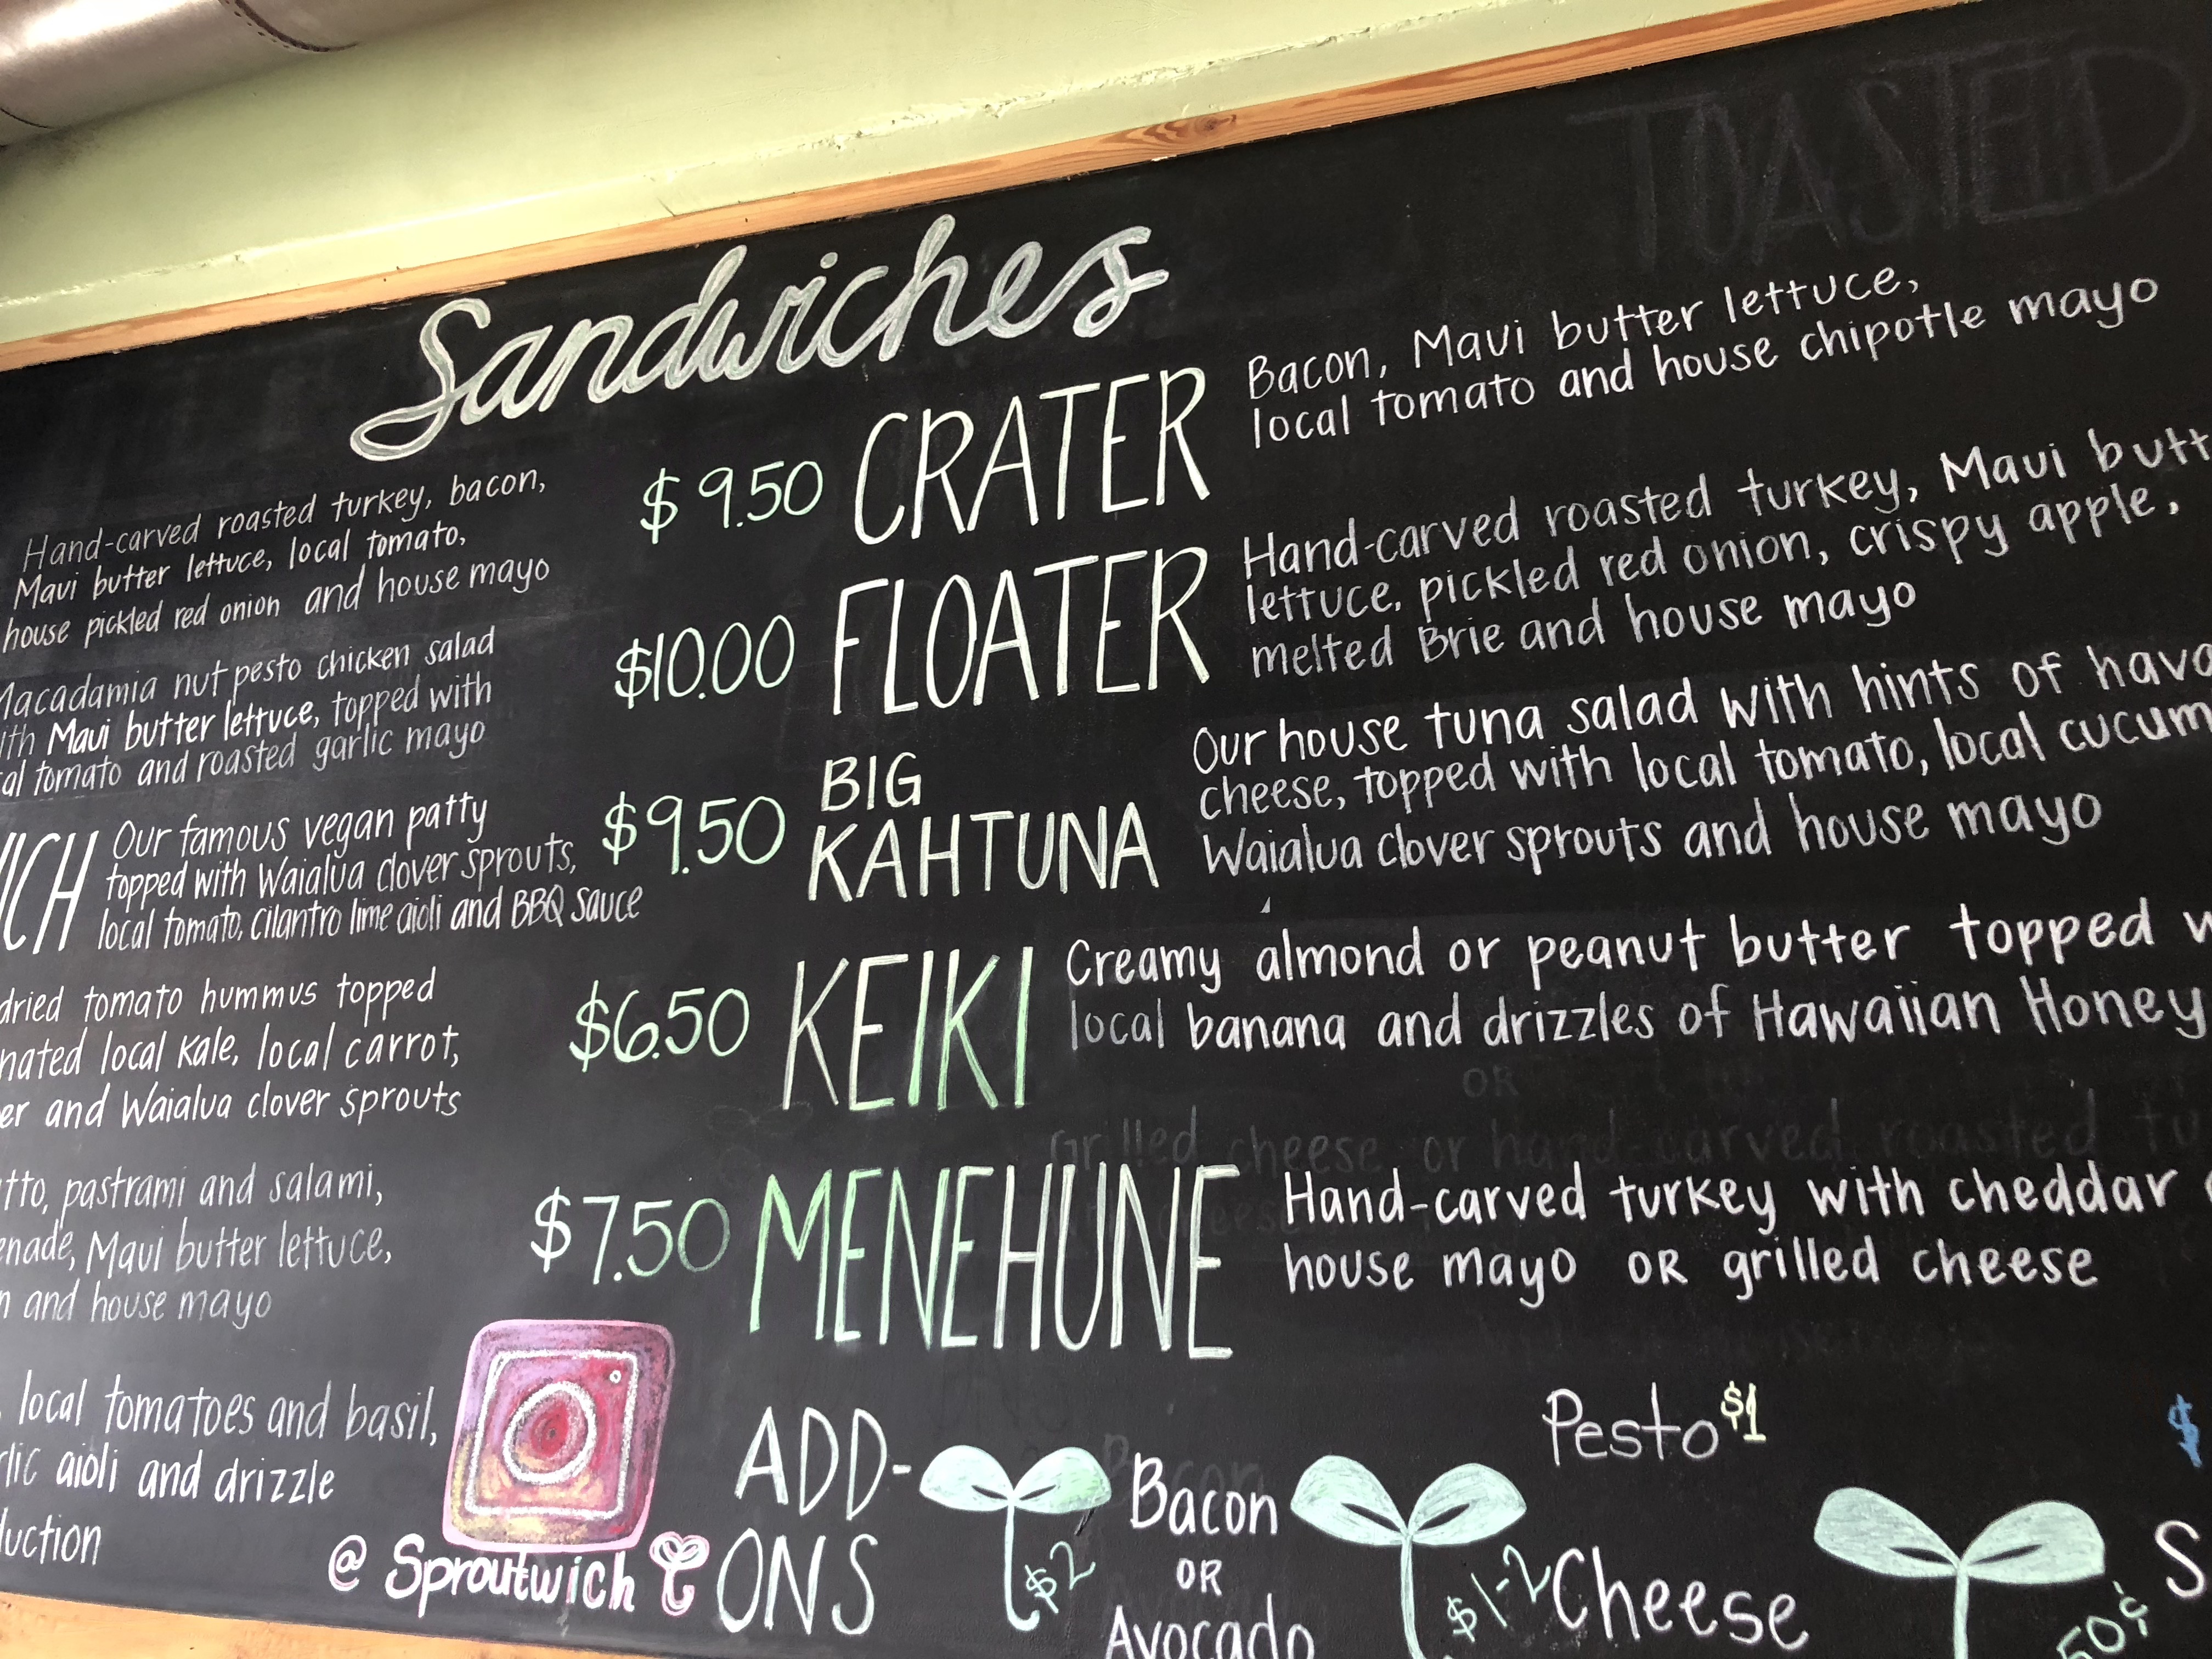 TOASTED
Sandwiches
Hand-carved roasted turkey, bacon,
Maui butter lettuce, local tomato,
house pickled red onion and house mayo
Macadamia nut pesto chicken salad
Maui butter lettuce, topped with
tomato and roasted garlic mayo
Our famous vegan patty
topped with Waialua clover sprouts,
local tomato, cilantro lime aioli and BBQ sauce
dried tomato hummus topped
local kale, local carrot,
and Waialua clover sprouts
pastrami and salami,
Maui butter lettuce,
and house mayo
local tomatoes and basil,
aioli and drizzle
@ Sproutwich
$9.50 CRATER
Bacon, Maui butter lettuce,
local tomato and house chipotle mayo
$10.00 FLOATER
Hand-carved roasted turkey, Maui
lettuce, pickled red onion, crispy apple,
melted Brie and house mayo
$9.50 BIG
KAHTUNA
Our house tuna salad with hints of
cheese, topped with local tomato, local
Waialua clover sprouts and house mayo
$6.50 KEIKI
Creamy almond or peanut butter topped
local banana and drizzles of Hawaiian Honey
OR
Grilled cheese or hand-carved roasted
$7.50 MENEHUNE
Hand-carved turkey with cheddar
house mayo OR grilled cheese
ADD-
ONS
$2
Bacon
OR
Avocado
Pesto $1
$1-2
Cheese
$
50¢